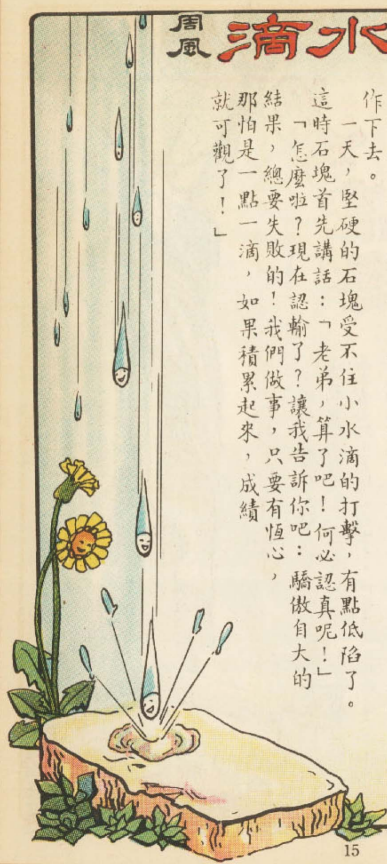 水滴
周風
作下去。
一天，堅硬的石塊受不住小水滴的打擊，有點低陷了。
這時石塊首先講話：「老弟，算了吧！何必認真呢！」
「怎麼啦？現在認輸了？讓我告訴你吧：驕傲自大的
結果，總要失敗的！我們做事，只要有恆心，
那怕是一點一滴，如果積累起來，成績
就可觀了！」
15